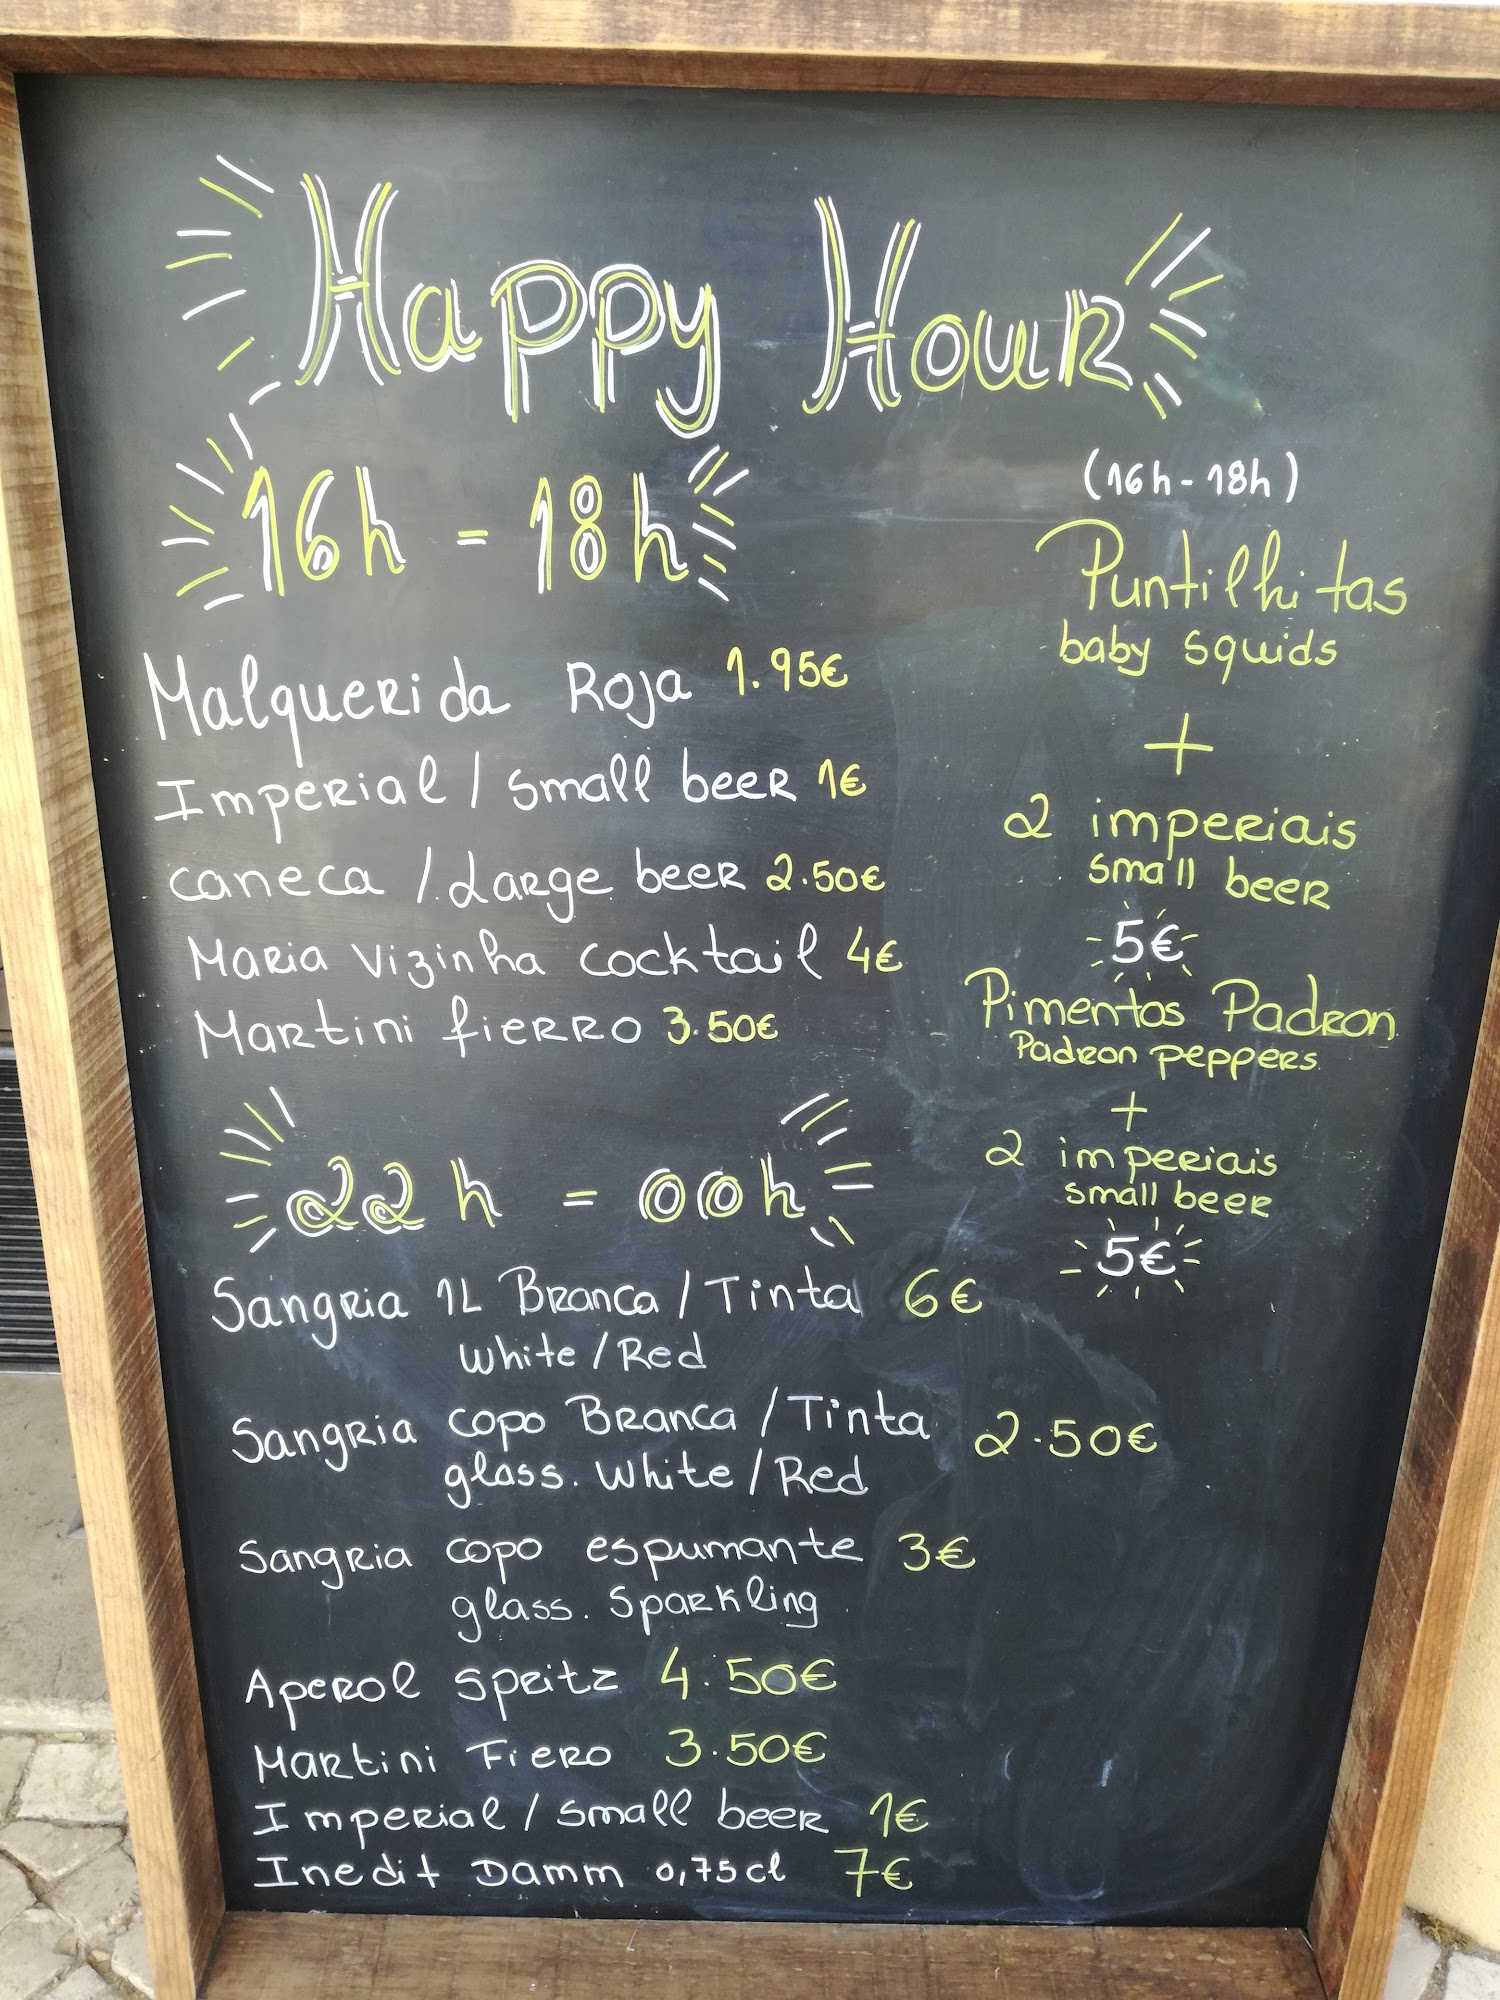 Happy Hour
16h - 18h
Malquerida Roja 1.95€
Imperial / small beer 1€
caneca / Large beer 2.50€
Maria Vizinha cocktail 4€
Martini fierro 3.50€
(16h - 18h)
Puntilhitas
baby squids
+
2 imperiais
small beer
5€
Pimentos Padron
Padron peppers
+
2 imperiais
small beer
5€
22h = 00h
Sangria 1L Branca / Tinta 6€
White / Red
Sangria copo Branca / Tinta 2.50€
glass. White / Red
Sangria copo espumante 3€
glass. Sparkling
Aperol Spritz 4.50€
Martini Fiero 3.50€
Imperial / small beer 1€
Inedit Damm 0,75cl 7€